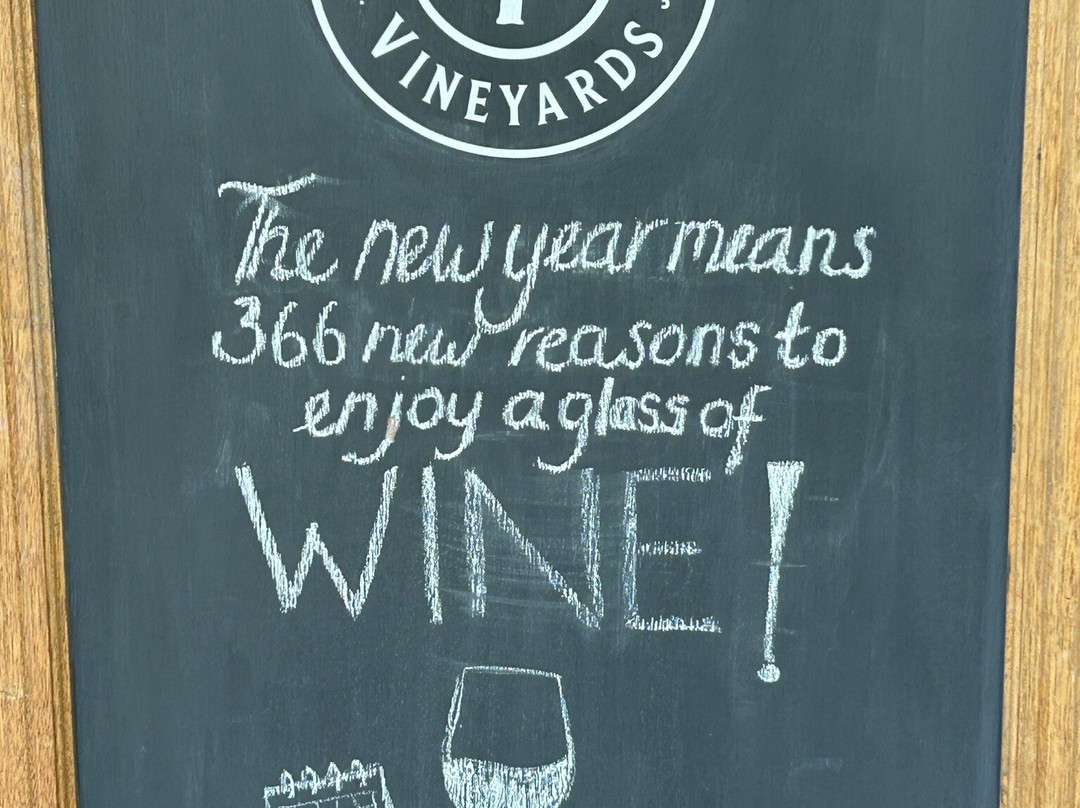 VINEYARDS
The new year means
366 new reasons to
enjoy a glass of
WINE!